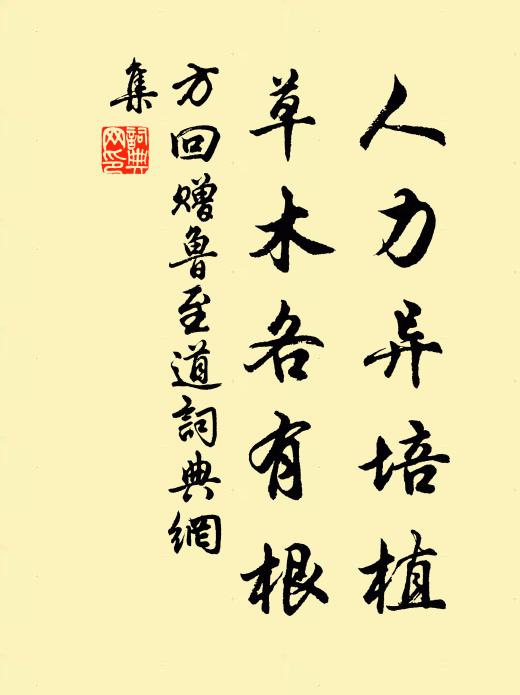 人力异培植
草木各有根
方回赠鲁至道詞典網
集
詞典
网印